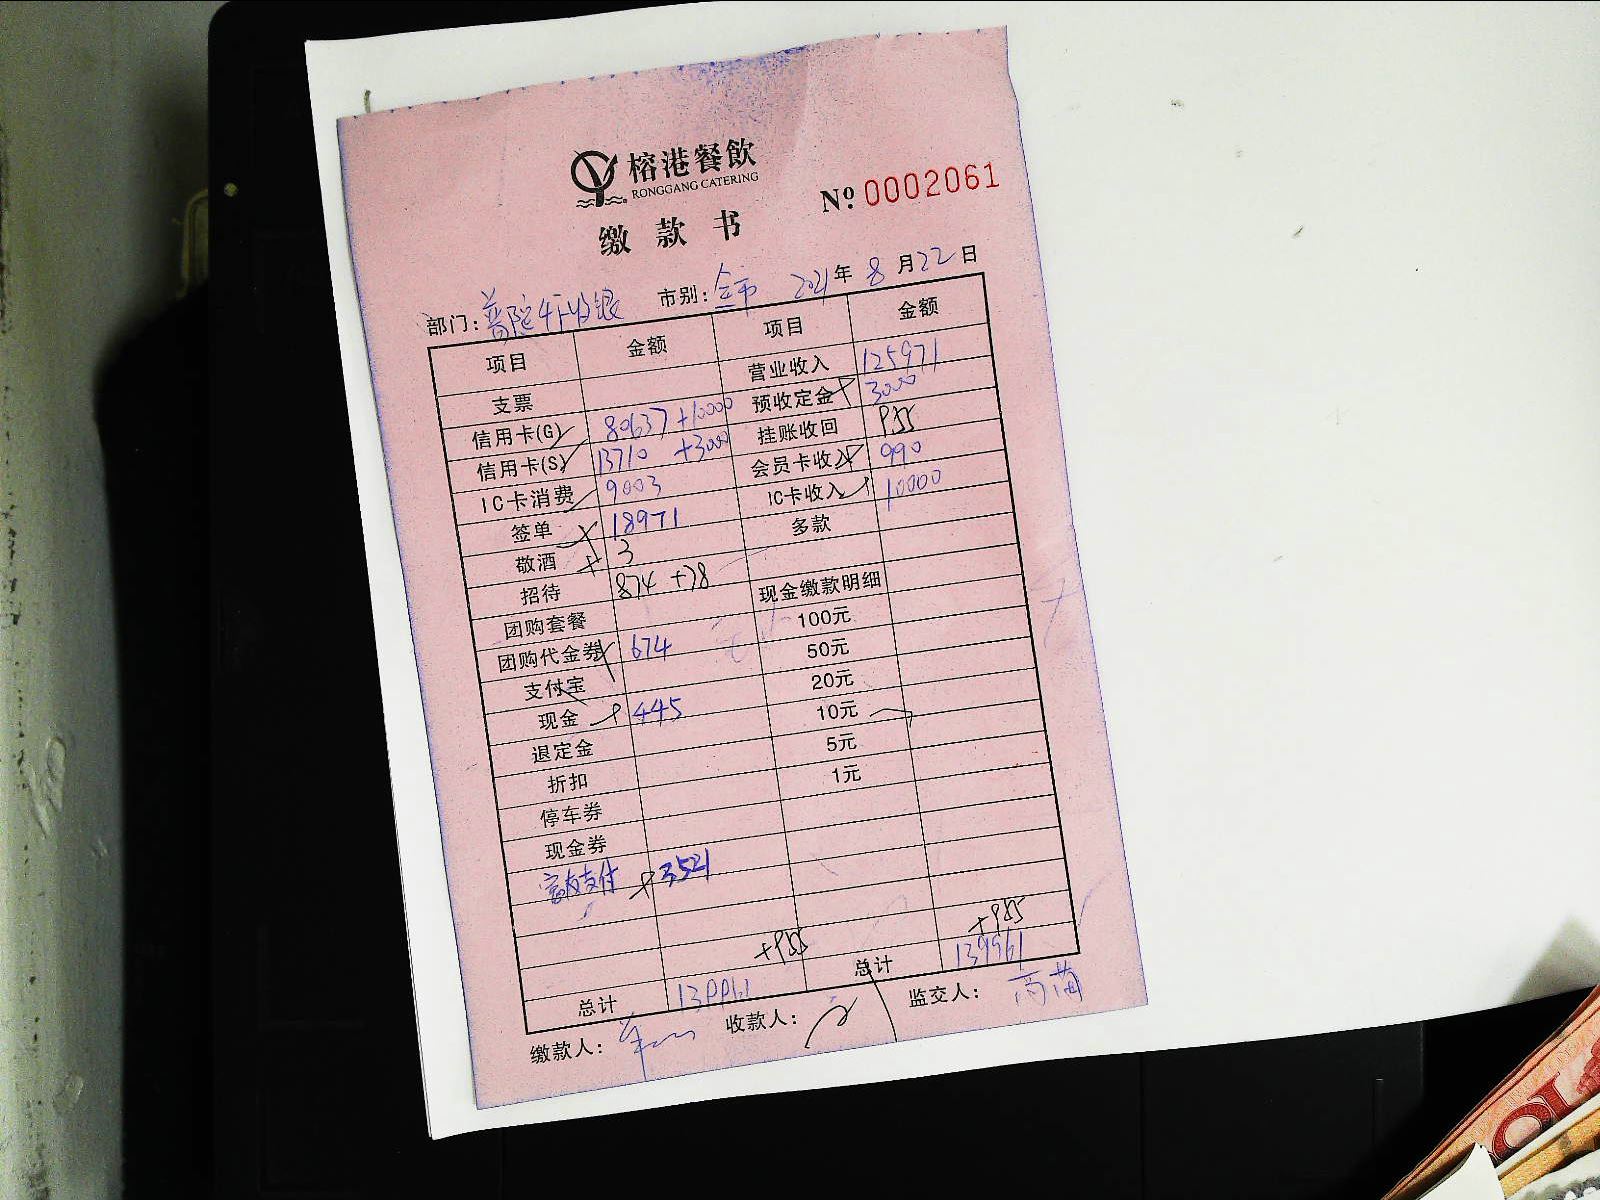 榕港餐飲
RONGGANG CATERING
№ 0002061
缴款书
部门：普陀4F收银 市别：全市 2021年8月22日
项目 金额 项目 金额
支票 营业收入 125971
信用卡(G) 80637+10000 预收定金 3000
信用卡(S) 13710 +3000 挂账收回 955
IC卡消费 9003 会员卡收入 990
签单 18971 IC卡收入 10000
敬酒 3 多款
招待 874 +78
团购套餐 现金缴款明细
团购代金券 674 100元
支付宝 50元
现金 445 20元
退定金 10元
折扣 5元
停车券 1元
现金券
支付 3521
+955 +955
总计 139961 总计 139961
缴款人： 收款人： 监交人：